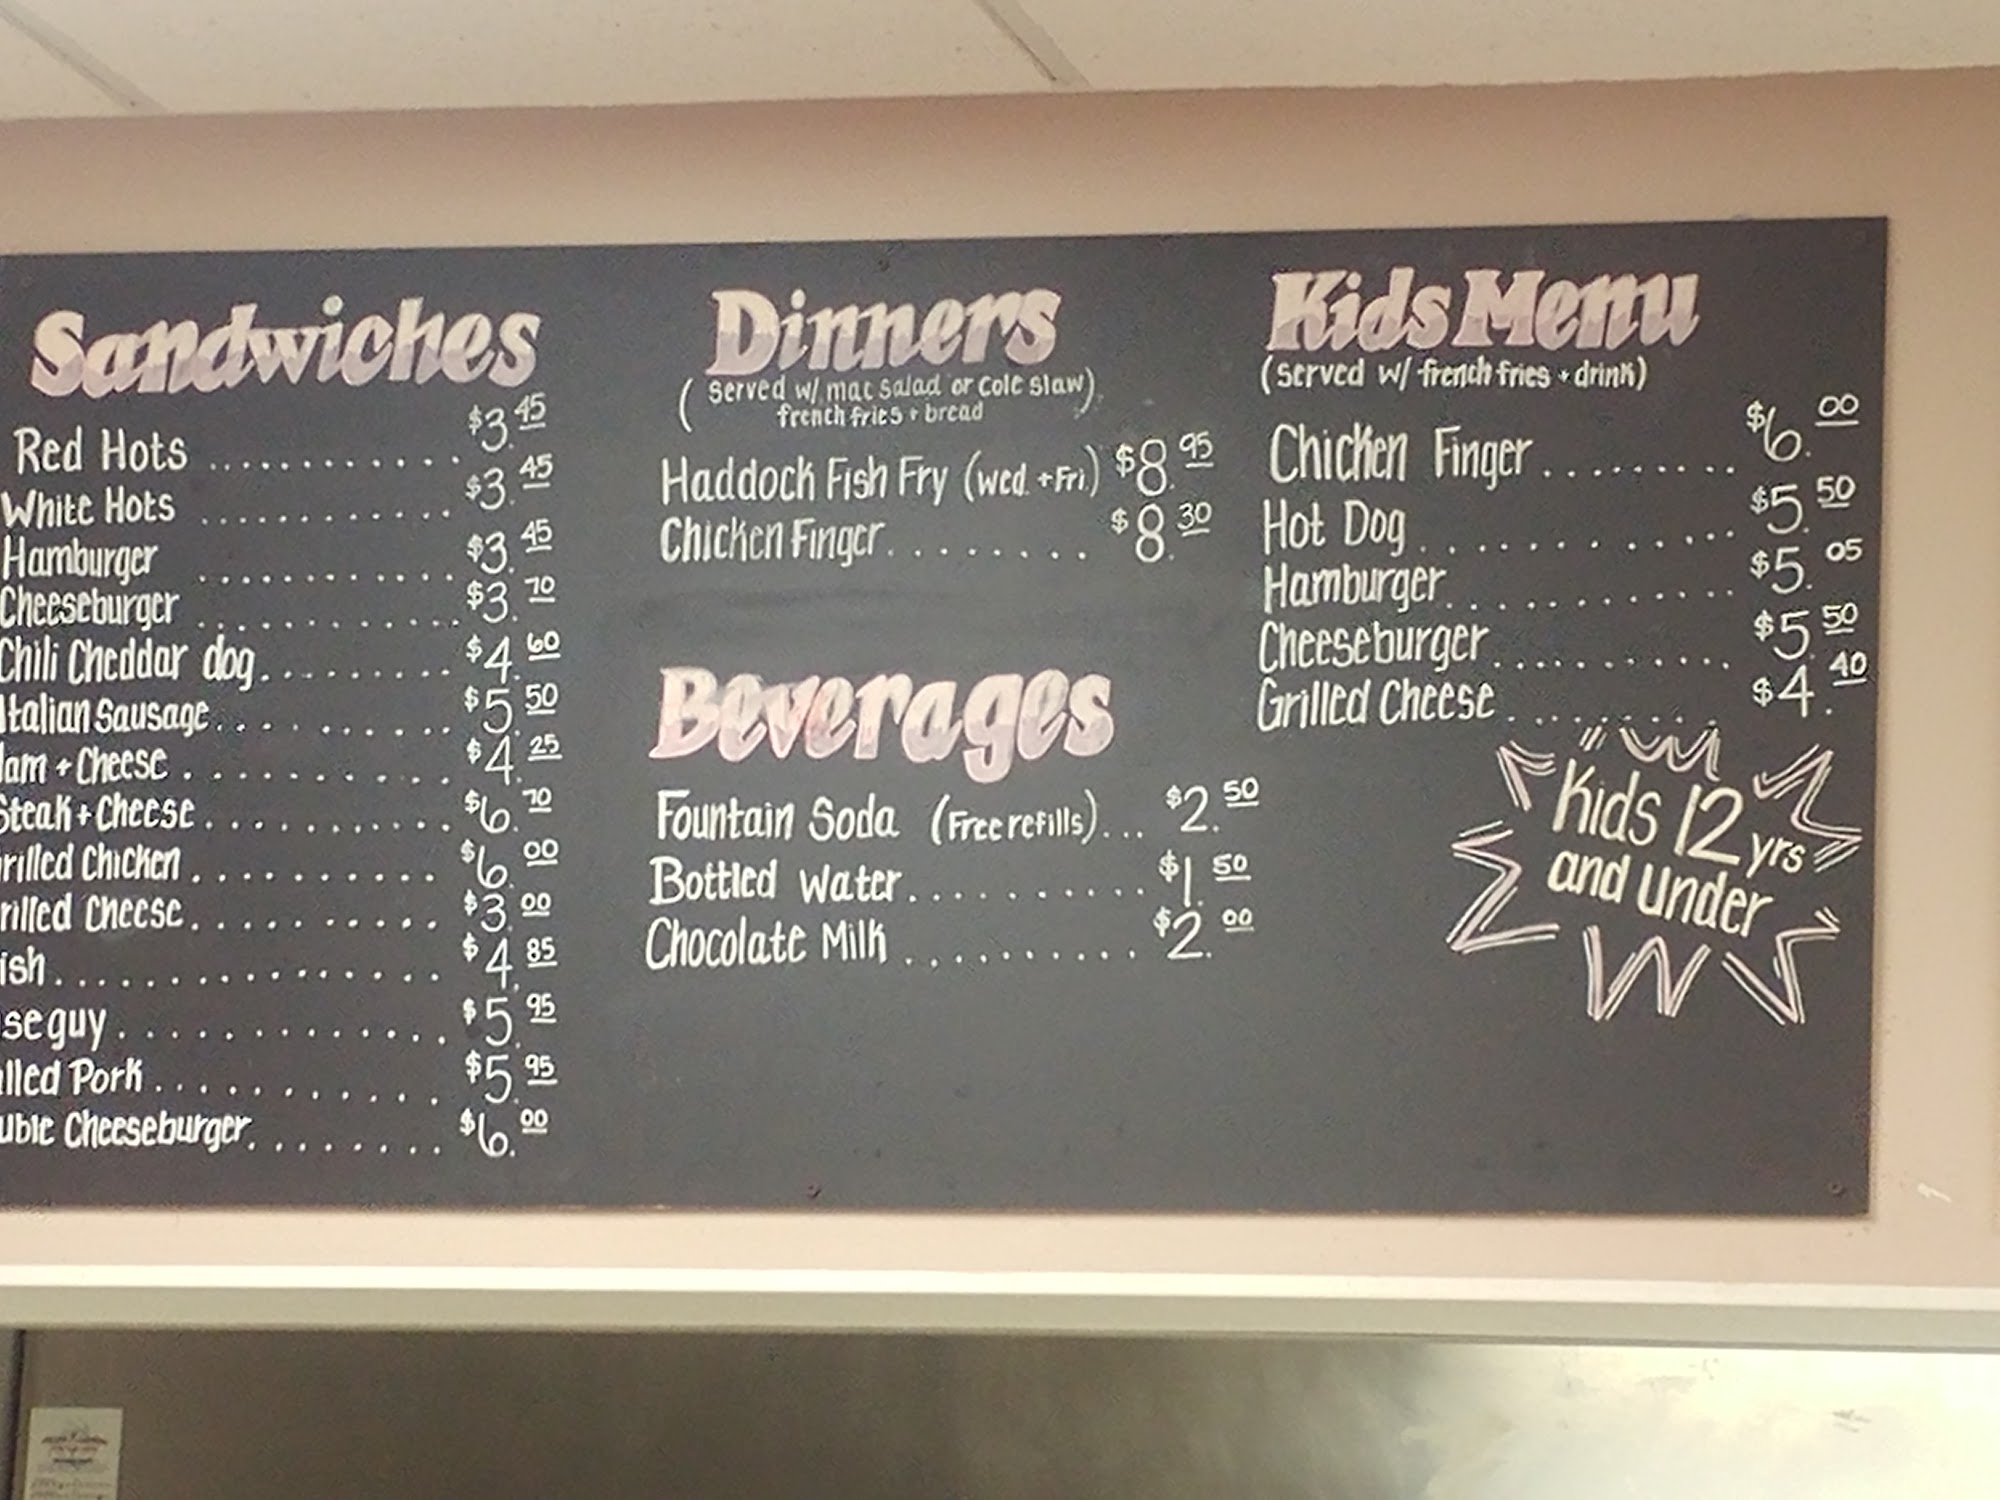 Sandwiches
Red Hots ............ $3.45
White Hots ............ $3.45
Hamburger ............ $3.45
Cheeseburger ............ $3.70
Chili Cheddar dog......... $4.60
Italian Sausage.......... $5.50
am + Cheese .......... $4.25
Steak + Cheese ........... $6.70
rilled Chicken .......... $6.00
rilled Cheese .......... $3.00
ish ............... $4.85
se guy ............. $5.95
lled Pork ........... $5.95
uble Cheeseburger........ $6.00
Dinners
(served w/ mac salad or cole slaw)
french fries + bread
Haddock Fish Fry (wed. + Fri.) $8.95
Chicken Finger........ $8.30
Beverages
Fountain Soda (Free refills)... $2.50
Bottled Water.......... $1.50
Chocolate Milk .......... $2.00
Kids Menu
(served w/ french fries + drink)
Chicken Finger ........ $6.00
Hot Dog ............ $5.50
Hamburger ........... $5.05
Cheeseburger .......... $5.50
Grilled Cheese ........ $4.40
Kids 12 yrs
and under